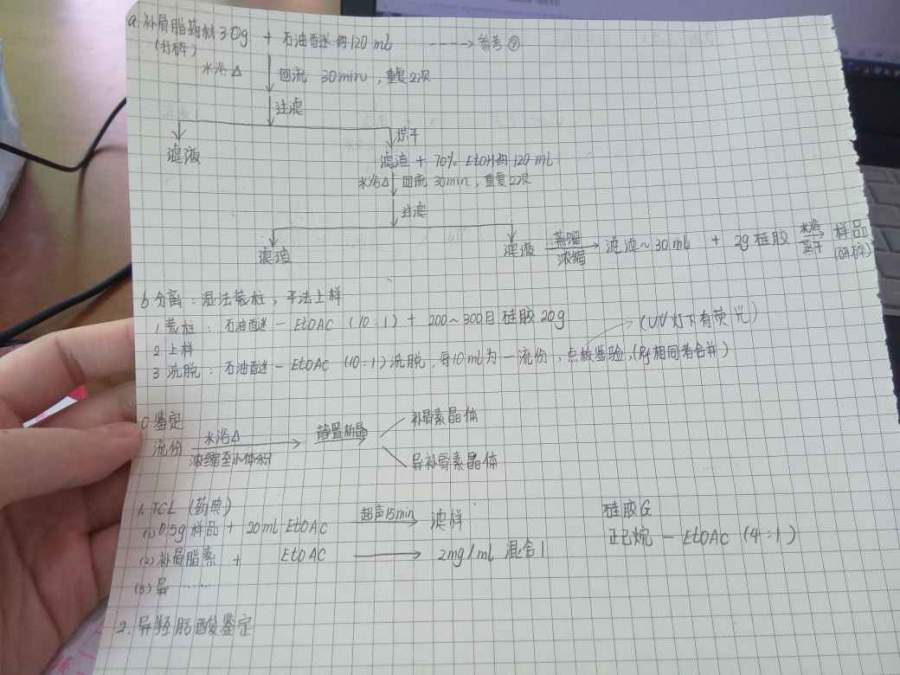 a. 补骨脂药材30g + 石油醚约120 ml ----→ 参考⑨
(粉碎)
水浴△ 回流 30min，重复2次
过滤
滤液 烘干
滤渣 + 70% EtOH约120 mL
水浴△ 回流30min，重复2次
过滤
滤渣 滤液 蒸馏 浓缩 → 滤液~30 mL + 2g 硅胶 水浴 蒸干 → 样品 (研碎)
b 分离：湿法装柱，干法上样
1 装柱：石油醚 - EtOAC (10:1) + 200~300目硅胶 20g
(UV灯下有荧光)
2 上样
3 洗脱：石油醚 - EtOAC (10:1) 洗脱，每10mL为一流份，点板鉴验，(Rf相同者合并)
C 鉴定
流份 水浴△ 浓缩至小体积 → 静置析晶 补骨素晶体
异补骨素晶体
1. TCL (药典)
(1) 0.5g 样品 + 20mL EtOAC 超声15min → 滤样 硅胶G
(2) 补骨脂素 + EtOAC → 2mg/ml 混合1 正己烷 - EtOAC (4:1)
(3) 异 ……
2. 异羟肟酸鉴定